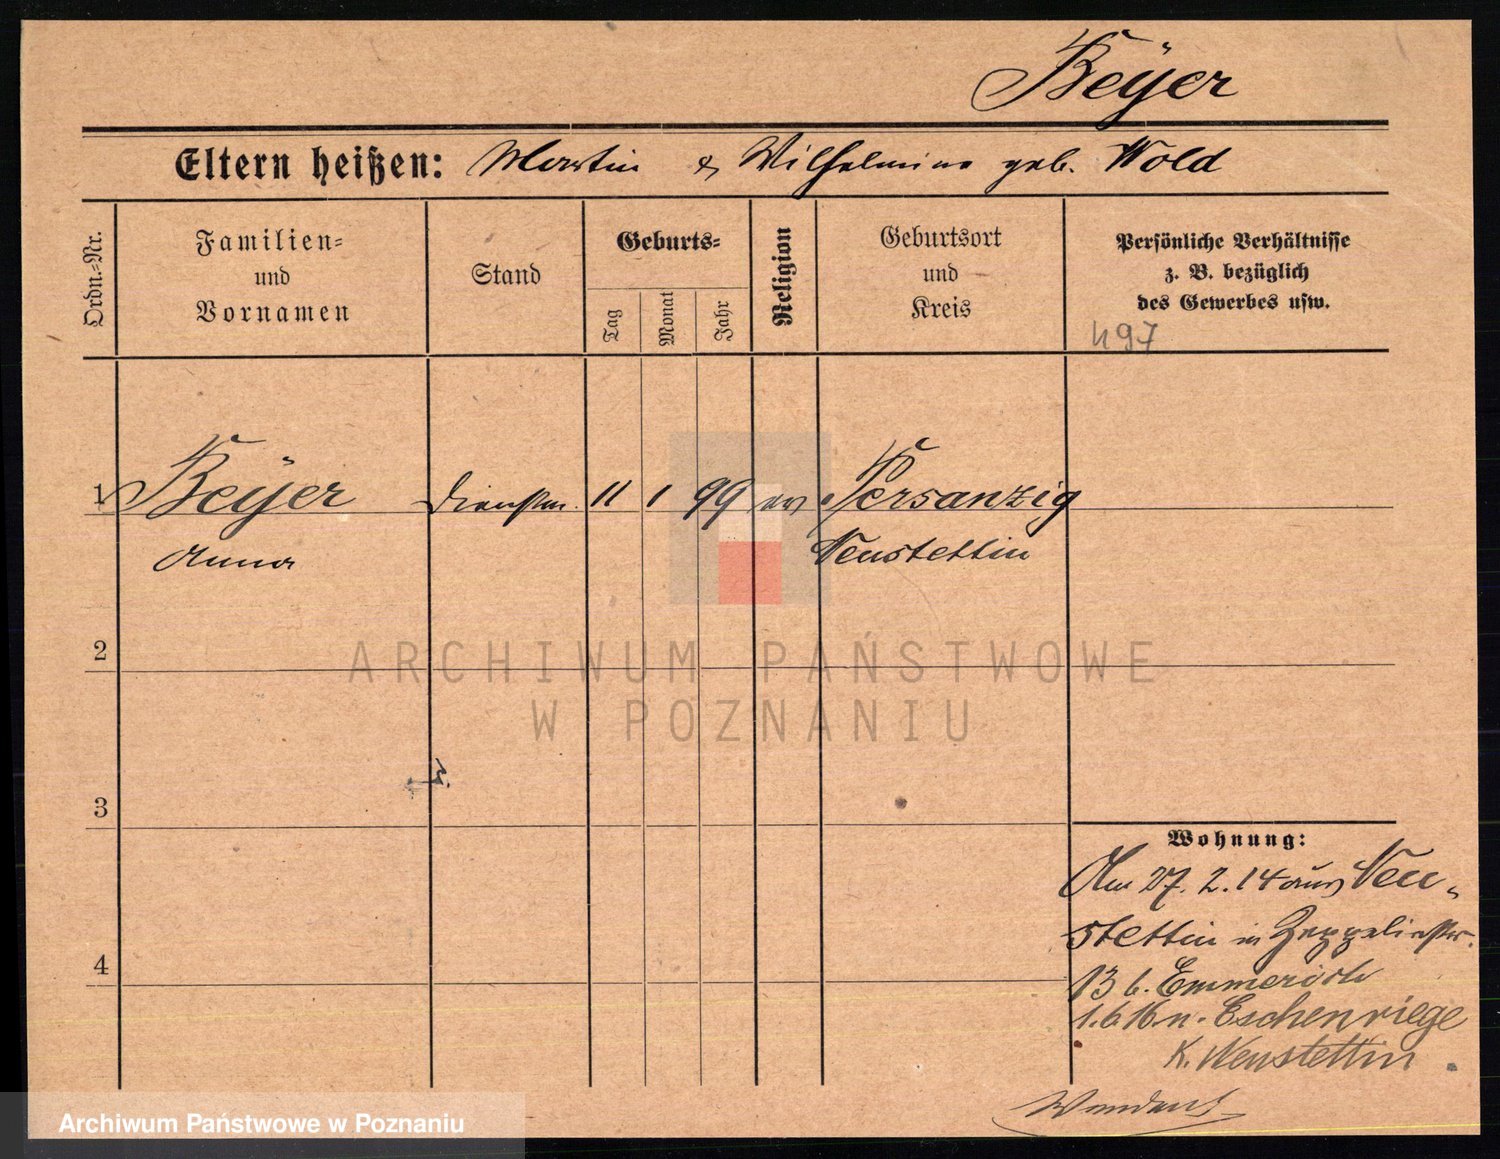 Beÿer
Eltern heißen: Martin & Wilhelmine geb. Wold
Ordn.-Nr.
Familien-
und
Vornamen
Stand
Geburts-
Tag
Monat
Jahr
Religion
Geburtsort
und
Kreis
Persönliche Verhältnisse
z. B. bezüglich
des Gewerbes usw.
497
1 Beÿer Dienstm. 11 1 99 ev Persanzig
Anna Neustettin
2
ARCHIWUM PAŃSTWOWE
W POZNANIU
3
Wohnung:
Am 27. 2. 14 aus Neu-
stettin in Zeppelinstr.
4
13 b. Emmerich
1.6.16 n. Eschenriege
K. Neustettin
Archiwum Państwowe w Poznaniu